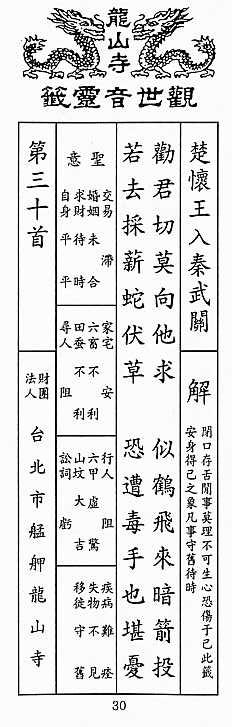 龍山寺
觀世音靈籤
楚懷王入秦武關
解
閉口存舌閒事莫理不可生心恐傷于己此籤
安身得己之象凡事守舊待時
勸君切莫向他求 似鶴飛來暗箭投
若去採薪蛇伏草 恐遭毒手也堪憂
聖意
交易 滯
婚姻 未合
求財 待時
自身 平平
家宅 安
六畜 不利
田蚕 不利
尋人 阻
行人 阻
六甲 虛驚
山墳 大吉
訟詞 虧
疾病 難痊
失物 不見
移徙 守舊
第三十首
財團法人 台北市艋舺龍山寺
30